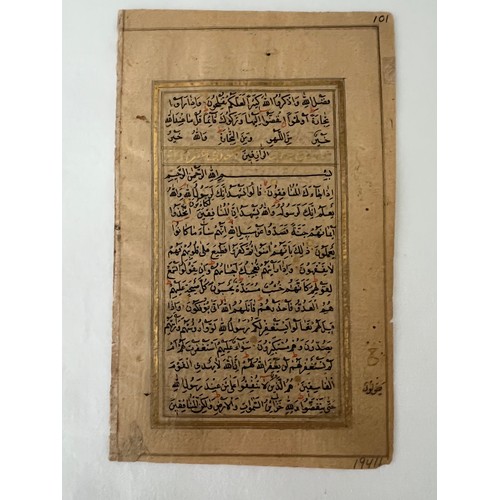 101
فضل الله واذكروا الله كثيرا لعلكم تفلحون واذا راوا
تجارة او لهوا انفضوا اليها وتركوك قائما قل ما عند الله
خير من اللهو ومن التجارة والله خير
الرازقين
بسم الله الرحمن الرحيم
اذا جاءك المنافقون قالوا نشهد انك لرسول الله والله
يعلم انك لرسوله والله يشهد ان المنافقين لكاذبون اتخذوا
ايمانهم جنة فصدوا عن سبيل الله انهم ساء ما كانوا
يعملون ذلك بانهم امنوا ثم كفروا فطبع على قلوبهم فهم
لا يفقهون واذا رايتهم تعجبك اجسامهم وان يقولوا تسمع
لقولهم كانهم خشب مسندة يحسبون كل صيحة عليهم
هم العدو فاحذرهم قاتلهم الله انى يؤفكون واذا
قيل لهم تعالوا يستغفر لكم رسول الله لووا رؤسهم ورايتهم
يصدون وهم مستكبرون سواء عليهم استغفرت لهم ام
لم تستغفر لهم لن يغفر الله لهم ان الله لا يهدي القوم
الفاسقين هم الذين يقولون لا تنفقوا على من عند رسول الله
حتى ينفضوا ولله خزائن السموات والارض ولكن المنافقين
يقولون
1941